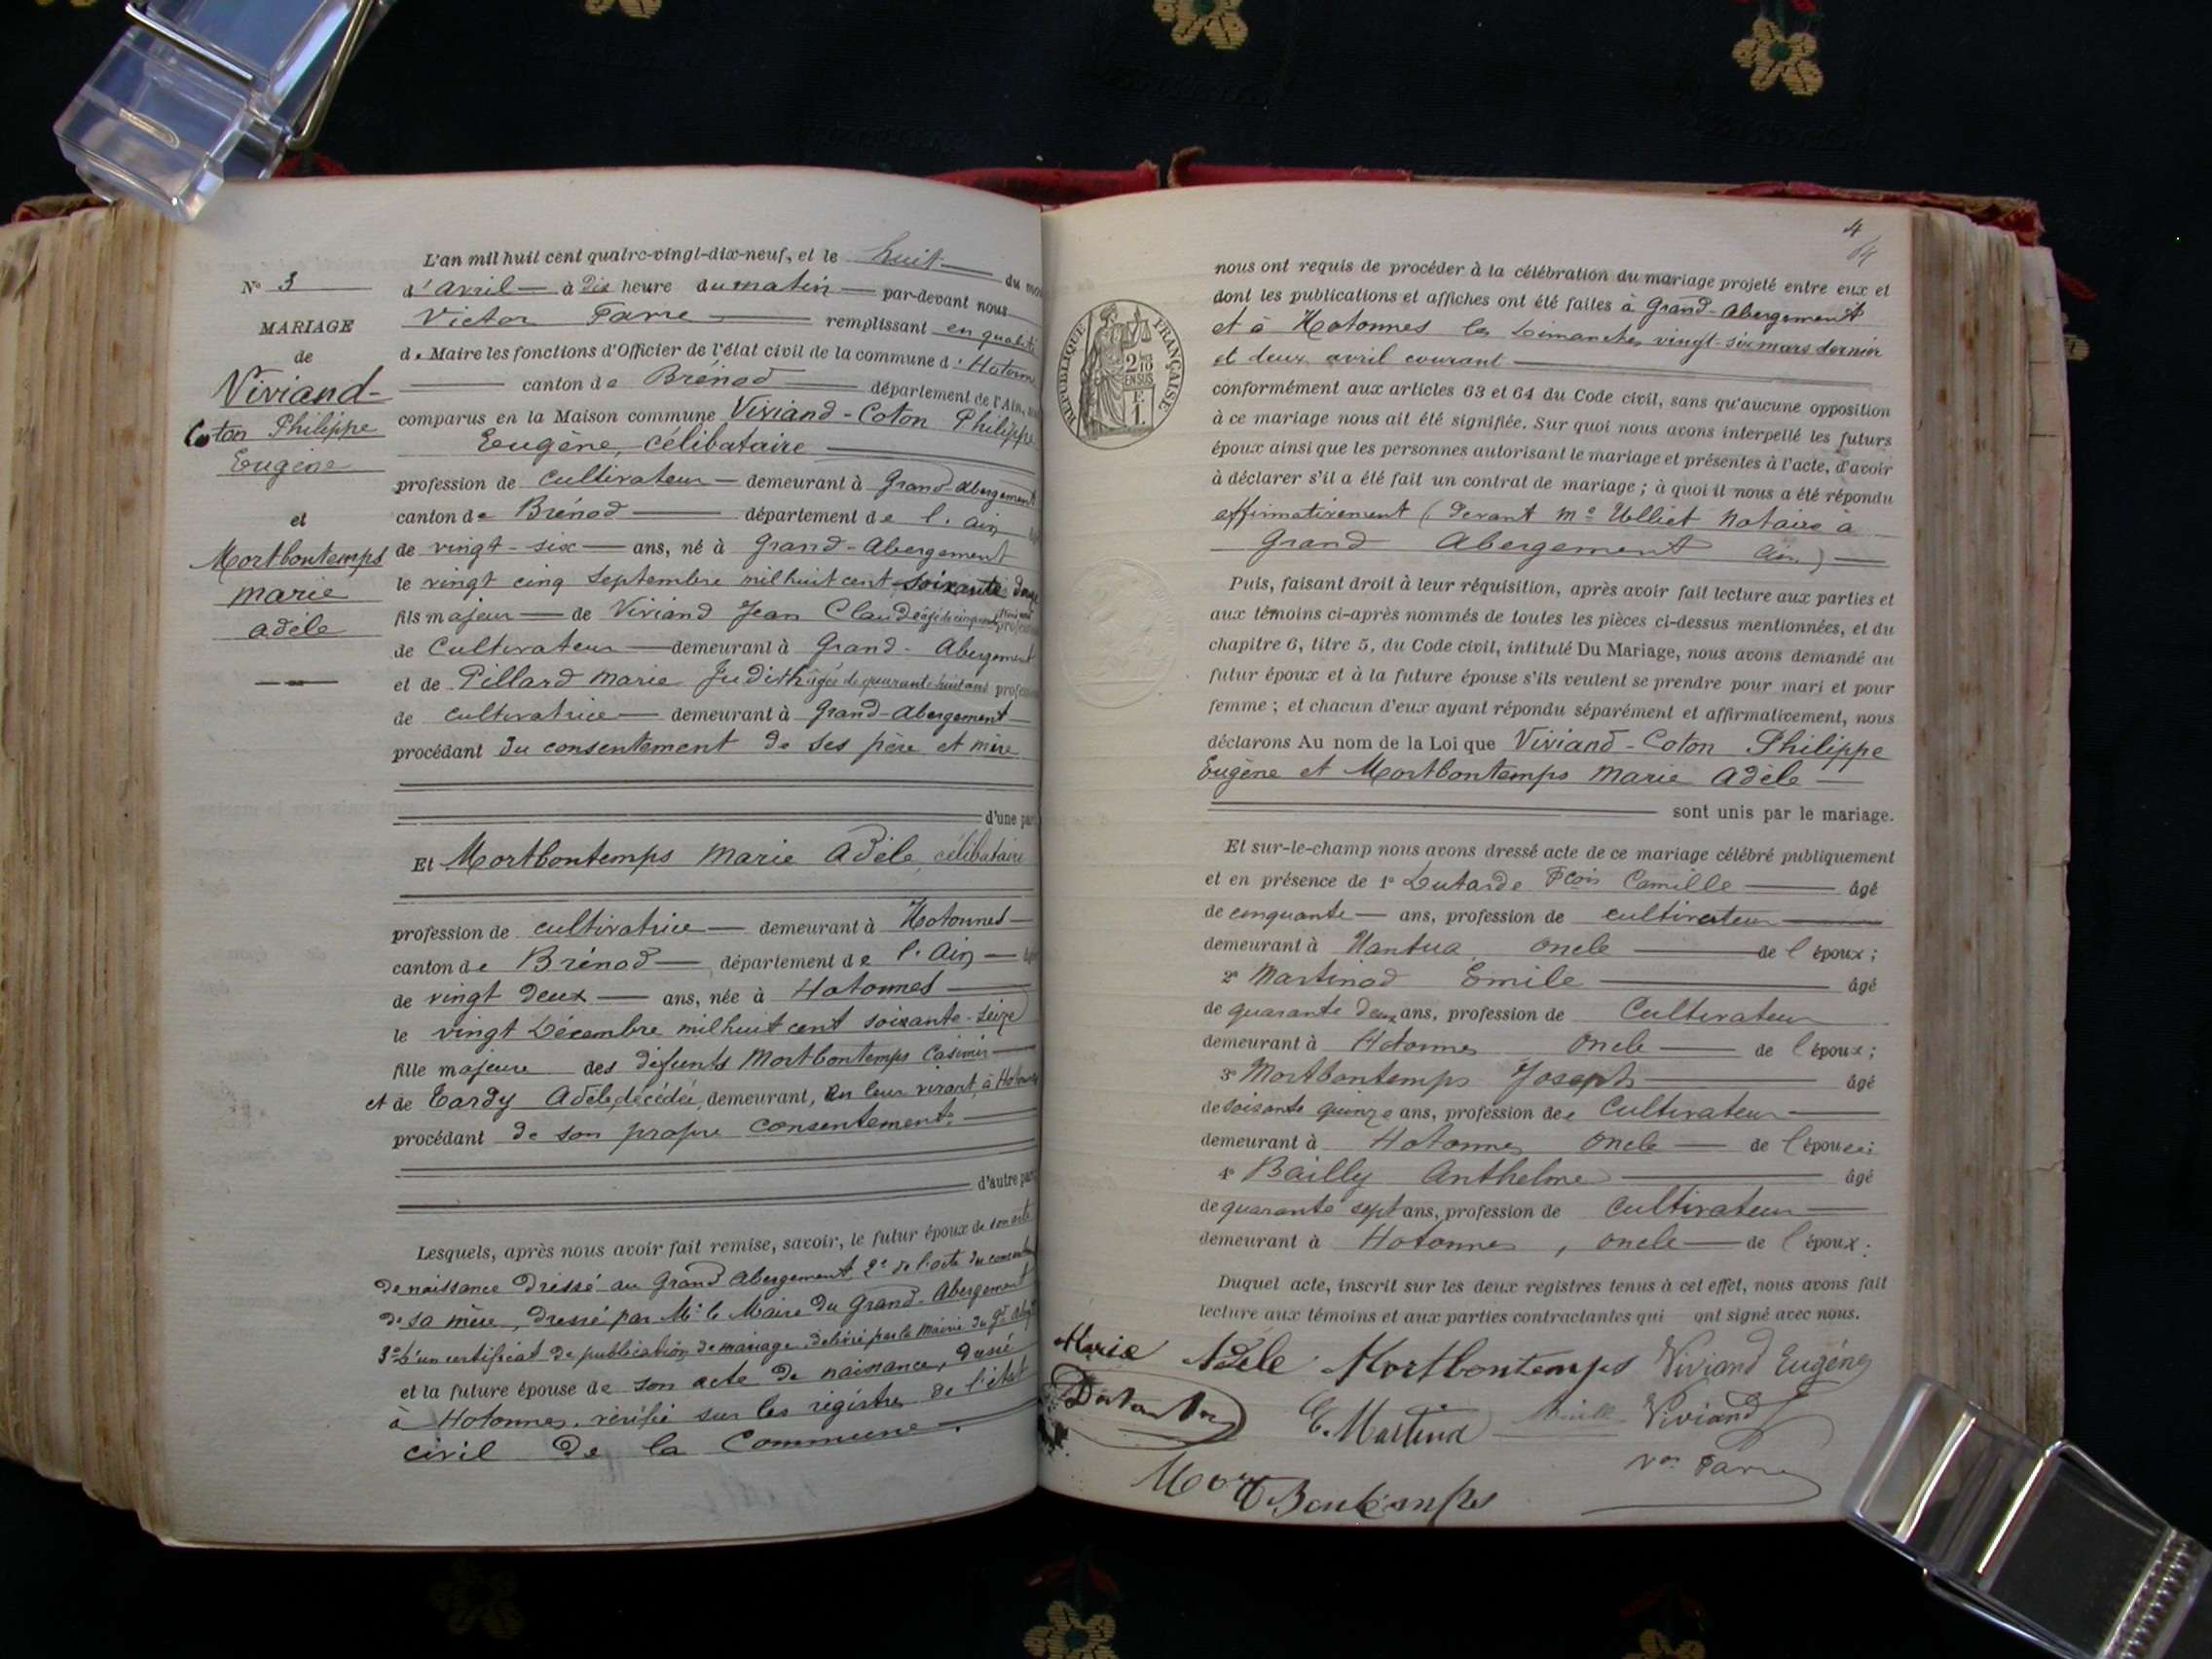 L'an mil huit cent quatre-vingt-dix-neuf, et le huit du mois
d'avril à dix heure du matin par-devant nous
Victor Favre remplissant en qualité
de Maire les fonctions d'Officier de l'état civil de la commune d'Hotonnes
canton de Brénod département de l'Ain,
comparus en la Maison commune Viviand-Coton Philippe
Eugène, célibataire
profession de cultivateur demeurant à Grand-Abergement
canton de Brénod département de l'Ain
de vingt-six ans, né à Grand-Abergement
le vingt cinq Septembre mil huit cent soixante douze
fils majeur de Viviand Jean Claude âgé de cinquante
de Cultivateur demeurant à Grand-Abergement
et de Pillard Marie Judith âgée de quarante huit ans profession
de cultivatrice demeurant à Grand-Abergement
procédant du consentement de ses père et mère
d'une part
Et Mortbontemps Marie Adèle, célibataire
profession de cultivatrice demeurant à Hotonnes
canton de Brénod département de l'Ain
de vingt deux ans, née à Hotonnes
le vingt Décembre mil huit cent soixante-seize
fille majeure des défunts Mortbontemps Casimir
et de Tardy Adèle, décédée, demeurant, en leur vivant, à Hotonnes
procédant de son propre consentement.
d'autre part
Lesquels, après nous avoir fait remise, savoir, le futur époux de son acte
de naissance dressé au Grand Abergement, 2° de l'acte du consentement
de sa mère, dressé par Mr le Maire du Grand-Abergement
3° d'un certificat de publication de mariage, délivré par le Maire du Gd Abergt
et la future épouse de son acte de naissance, dressé
à Hotonnes. vérifié sur les registres de l'état
civil de la Commune.
N° 3
MARIAGE
de
Viviand-
Coton Philippe
Eugène
et
Mortbontemps
Marie
Adèle
4
nous ont requis de procéder à la célébration du mariage projeté entre eux et
dont les publications et affiches ont été faites à Grand-Abergement
et à Hotonnes les Dimanches vingt-six mars dernier
et deux avril courant
conformément aux articles 63 et 64 du Code civil, sans qu'aucune opposition
à ce mariage nous ait été signifiée. Sur quoi nous avons interpellé les futurs
époux ainsi que les personnes autorisant le mariage et présentes à l'acte, d'avoir
à déclarer s'il a été fait un contrat de mariage ; à quoi il nous a été répondu
affirmativement (devant Me Notaire à
Grand Abergement Ain)
Puis, faisant droit à leur réquisition, après avoir fait lecture aux parties et
aux témoins ci-après nommés de toutes les pièces ci-dessus mentionnées, et du
chapitre 6, titre 5, du Code civil, intitulé Du Mariage, nous avons demandé au
futur époux et à la future épouse s'ils veulent se prendre pour mari et pour
femme ; et chacun d'eux ayant répondu séparément et affirmativement, nous
déclarons Au nom de la Loi que Viviand-Coton Philippe
Eugène et Mortbontemps Marie Adèle
sont unis par le mariage.
Et sur-le-champ nous avons dressé acte de ce mariage célébré publiquement
et en présence de 1° Dutarde Fçois Camille âgé
de cinquante ans, profession de cultivateur
demeurant à Nantua oncle de l'époux ;
2° Martinod Emile âgé
de quarante deux ans, profession de Cultivateur
demeurant à Hotonnes Oncle de l'époux ;
3° Mortbontemps Joseph âgé
de soixante quinze ans, profession de Cultivateur
demeurant à Hotonnes Oncle de l'épouse ;
4° Bailly Anthelme âgé
de quarante sept ans, profession de Cultivateur
demeurant à Hotonnes, oncle de l'époux ;
Duquel acte, inscrit sur les deux registres tenus à cet effet, nous avons fait
lecture aux témoins et aux parties contractantes qui ont signé avec nous.
Marie Adèle Mortbontemps Viviand Eugène
E. Martinod Viviand
Vor Favre
MortBontemps
RÉPUBLIQUE FRANÇAISE
2/10
EN SUS
F.
1.